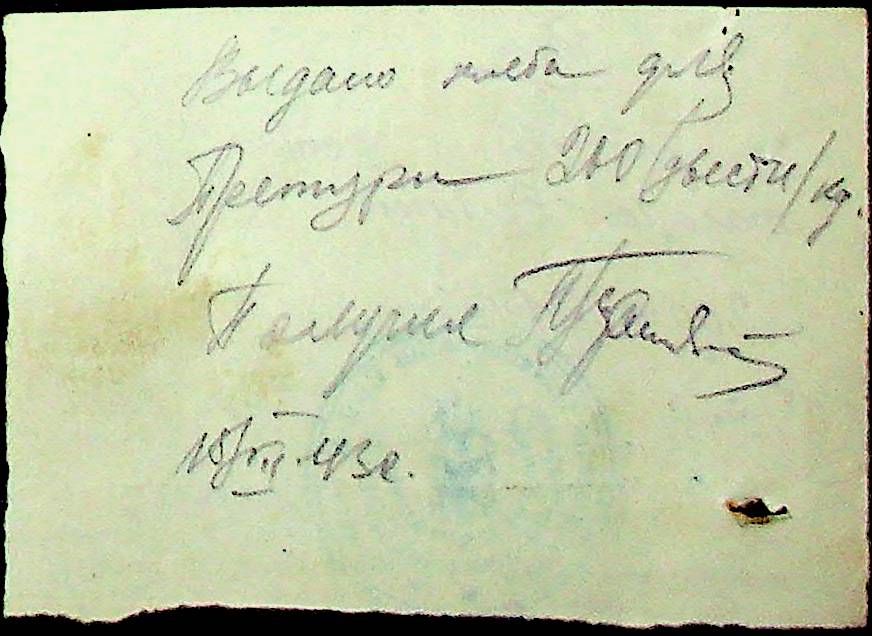 Выдано хлеба для
Претуры 200 /двести/ кг.
Получил
18/XII.43г.